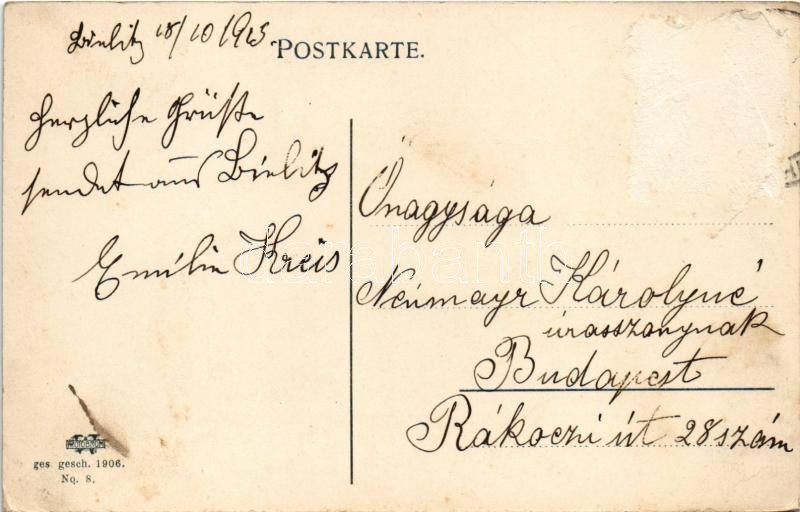 Bielitz 18/10 1905
POSTKARTE.
Herzliche Grüße
sendet aus Bielitz
Emilie Kreis
Őnagysága
Neumayr Károlyné
úrasszonynak
Budapest
Rákoczi út 28 szám
darabanth
ges. gesch. 1906.
No. 8.